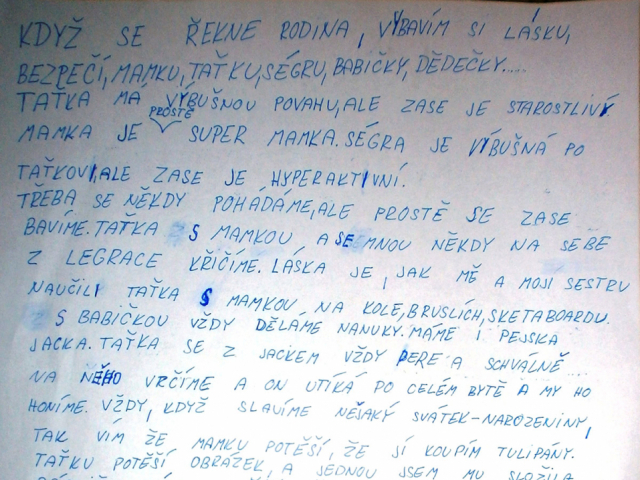 KDYŽ SE ŘEKNE RODINA, VYBAVÍM SI LÁSKU,
BEZPEČÍ, MAMKU, TAŤKU, SÉGRU, BABIČKY, DĚDEČKY....
TAŤKA MÁ VÝBUŠNOU POVAHU, ALE ZASE JE STAROSTLIVÝ
PROSTĚ
MAMKA JE SUPER MAMKA. SÉGRA JE VÝBUŠNÁ PO
TAŤKOVI, ALE ZASE JE HYPERAKTIVNÍ.
TŘEBA SE NĚKDY POHÁDÁME, ALE PROSTĚ SE ZASE
BAVÍME. TAŤKA S MAMKOU A SE MNOU NĚKDY NA SEBE
Z LEGRACE KŘIČÍME. LÁSKA JE, JAK MĚ A MOJI SESTRU
NAUČILI TAŤKA S MAMKOU NA KOLE, BRUSLÍCH, SKETABOARDU.
S BABIČKOU VŽDY DĚLÁME NANUKY. MÁME I PEJSKA
JACKA. TAŤKA SE Z JACKEM VŽDY PERE A SCHVÁLNĚ
NA NĚHO VRČÍME A ON UTÍKÁ PO CELÉM BYTĚ A MY HO
HONÍME. VŽDY, KDYŽ SLAVÍME NĚJAKÝ SVÁTEK-NAROZENINY,
TAK VÍM ŽE MAMKU POTĚŠÍ, ŽE JÍ KOUPÍM TULIPÁNY.
TAŤKU POTĚŠÍ OBRÁZEK, A JEDNOU JSEM MU SLOŽILA